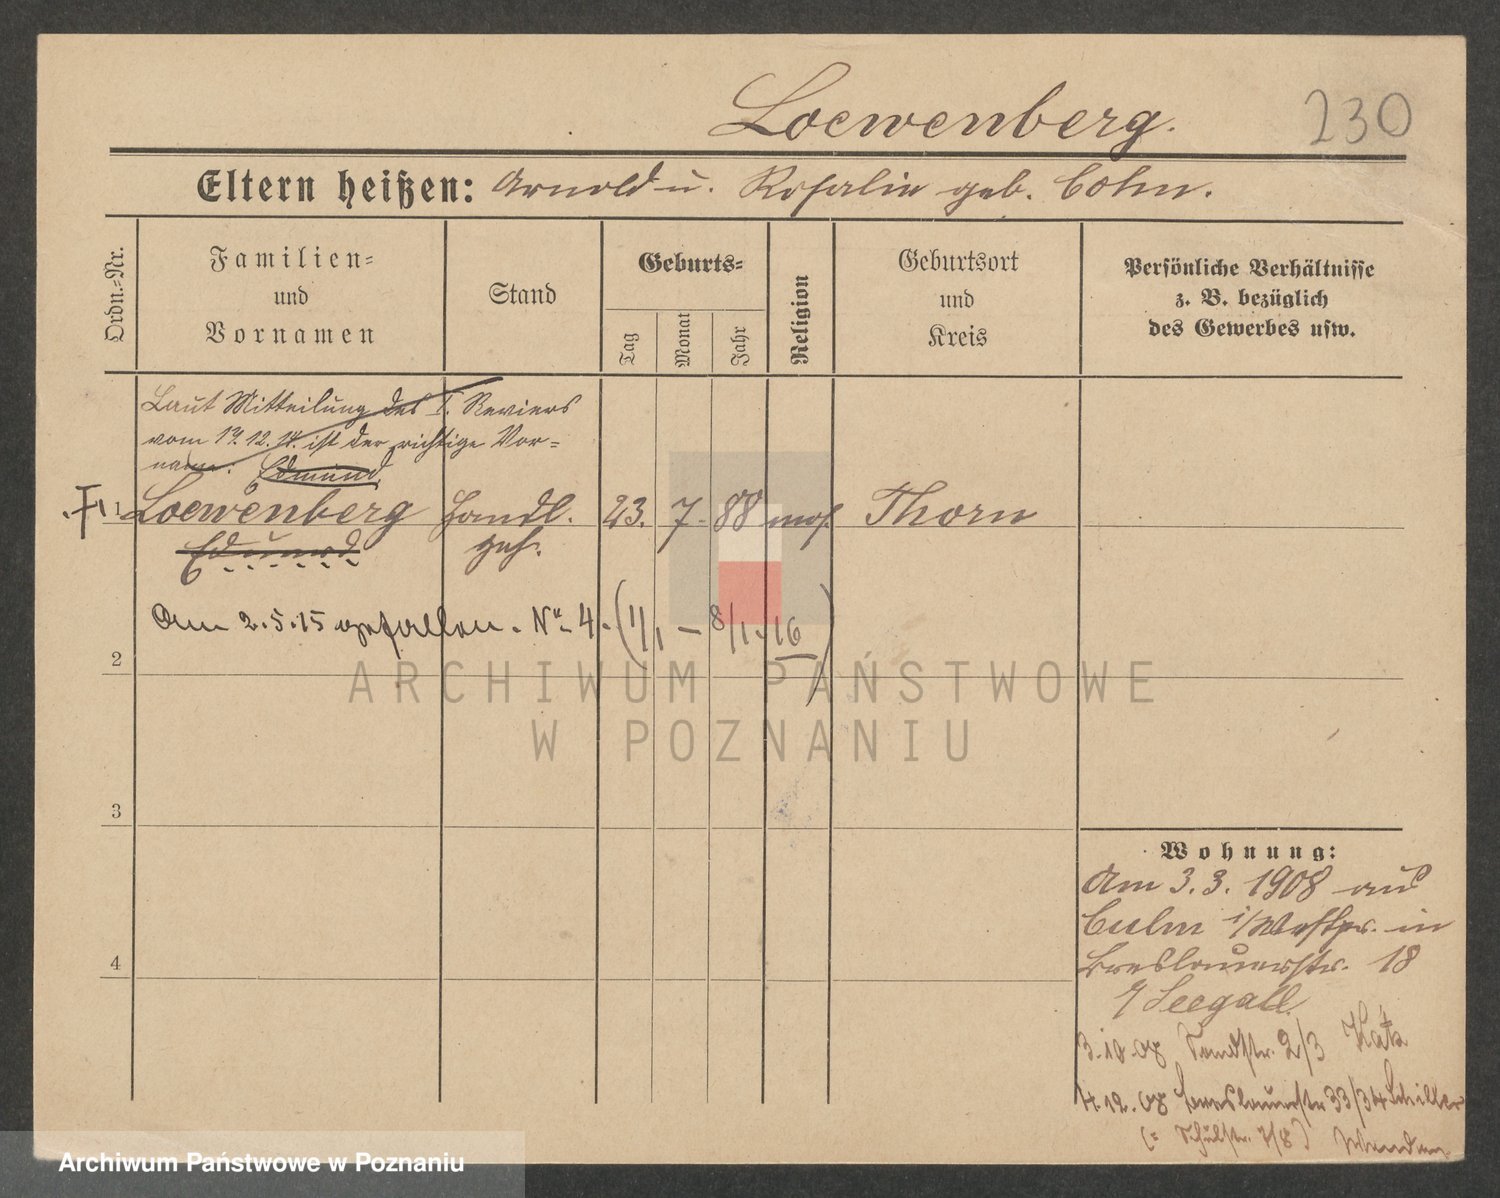 Loewenberg. 230
Eltern heißen: Arnold u. Rosalie geb. Cohn.
Ordn.-Nr.
Familien-
und
Vornamen
Stand
Geburts-
Tag
Monat
Jahr
Religion
Geburtsort
und
Kreis
Persönliche Verhältnisse
z. B. bezüglich
des Gewerbes usw.
Laut Mitteilung des I. Reviers
vom 19.12.14. ist der richtige Vor-
name: Edmund
1 Loewenberg Handl. 23. 7. 88 mos. Thorn
Eduard geh.
Am 2.5.15 gefallen. No. 4. (1/1 — 8/1.16)
2
3
4
Wohnung:
Am 3.3.1908 aus
Culm i/Westpr. in
Breslauerstr. 18
b/ Seegall
3.10.08 Sandstr. 2/3 Katz
4.12.08 Breslauerstr 33/34 Schiller
(= Schulstr. 7/8)
ARCHIWUM PAŃSTWOWE
W POZNANIU
Archiwum Państwowe w Poznaniu